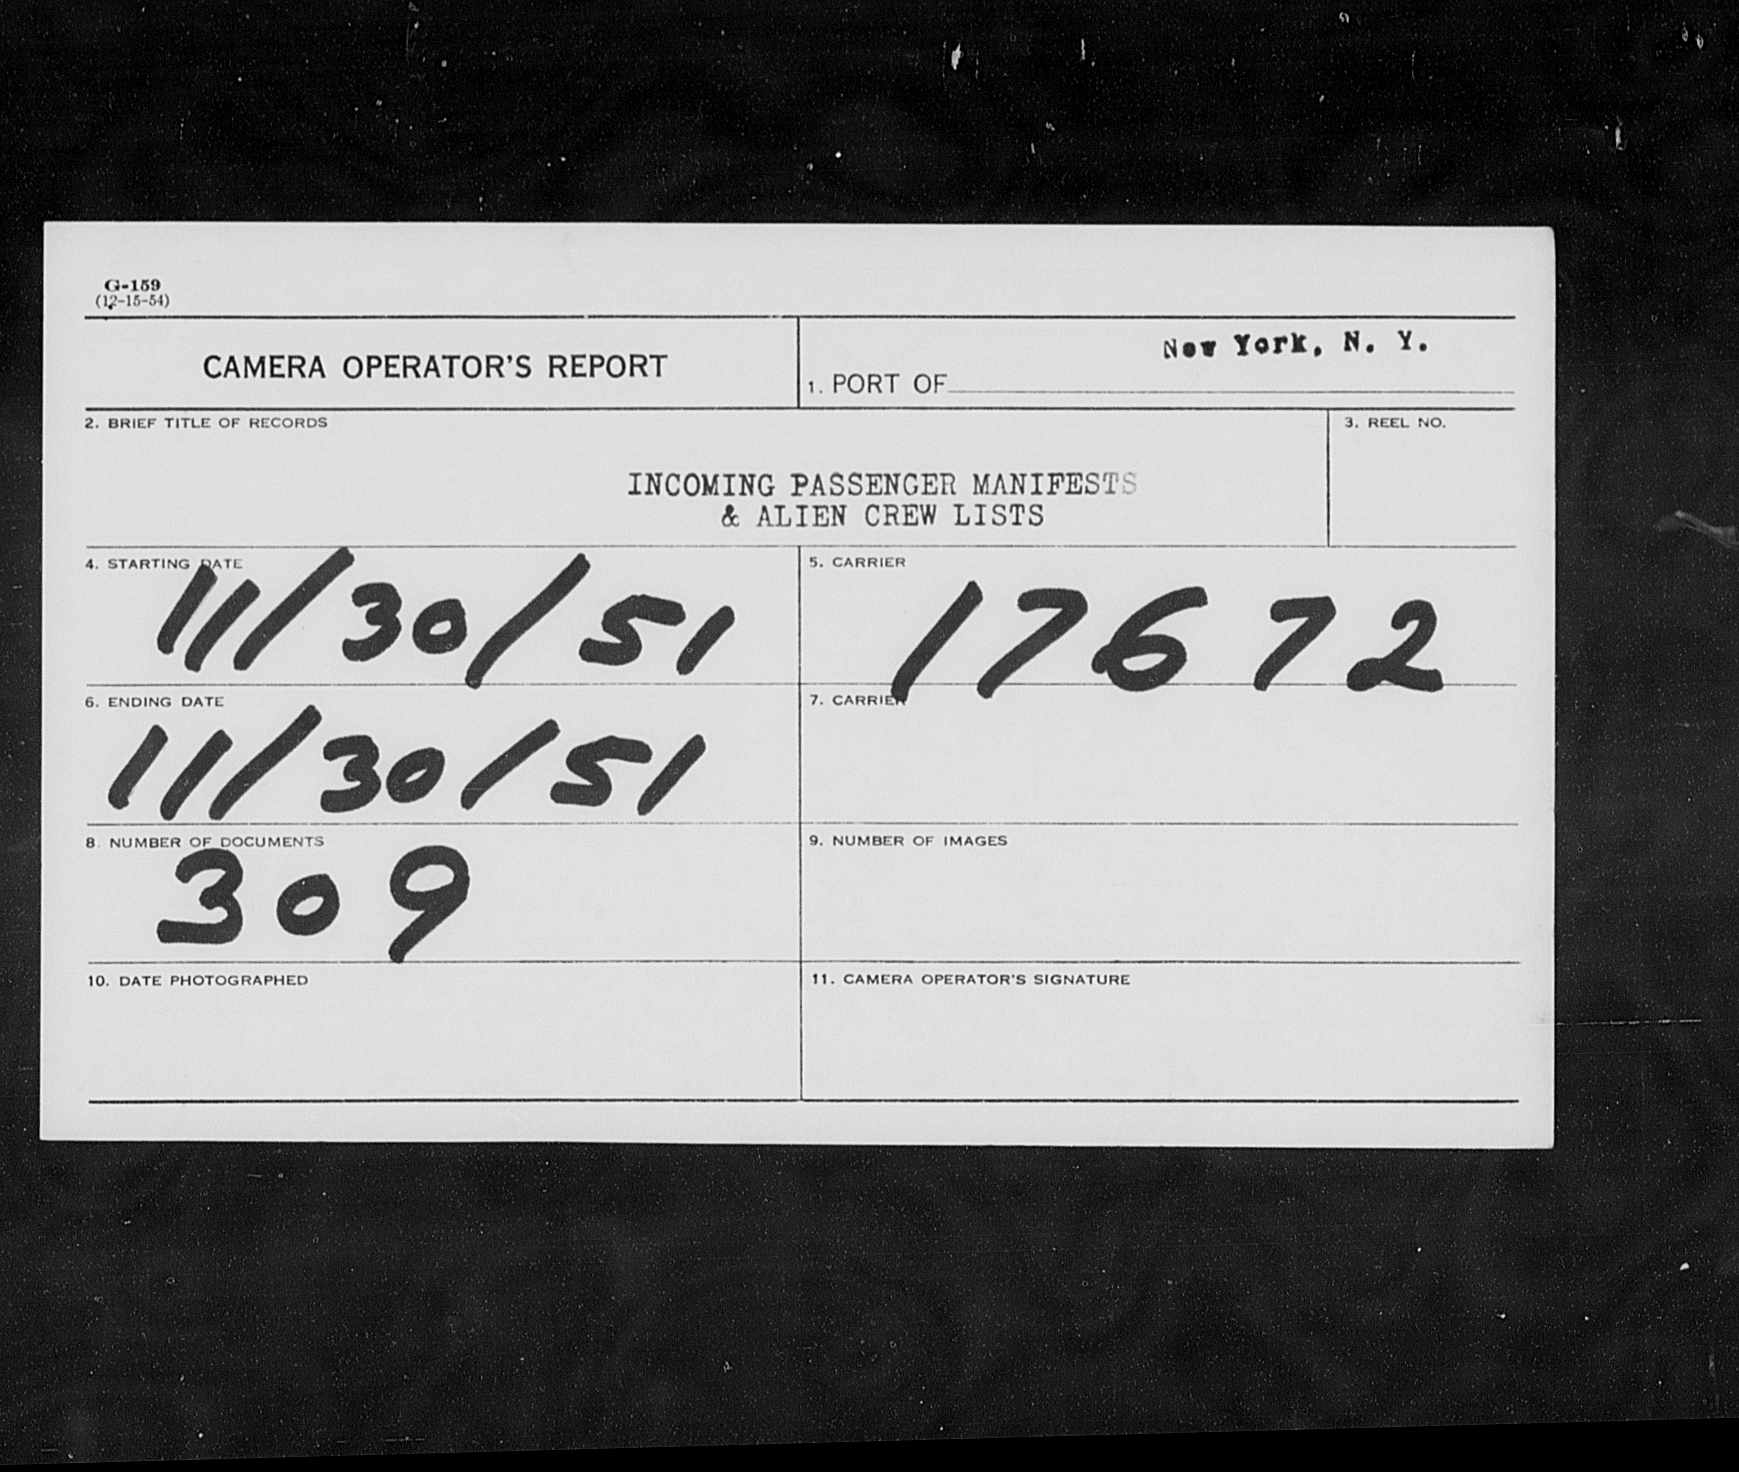 G-159
(12-15-54)
CAMERA OPERATOR'S REPORT
1. PORT OF New York, N. Y.
2. BRIEF TITLE OF RECORDS
3. REEL NO.
INCOMING PASSENGER MANIFESTS
& ALIEN CREW LISTS
4. STARTING DATE
11/30/51
5. CARRIER
17672
6. ENDING DATE
11/30/51
7. CARRIER
8. NUMBER OF DOCUMENTS
309
9. NUMBER OF IMAGES
10. DATE PHOTOGRAPHED
11. CAMERA OPERATOR'S SIGNATURE